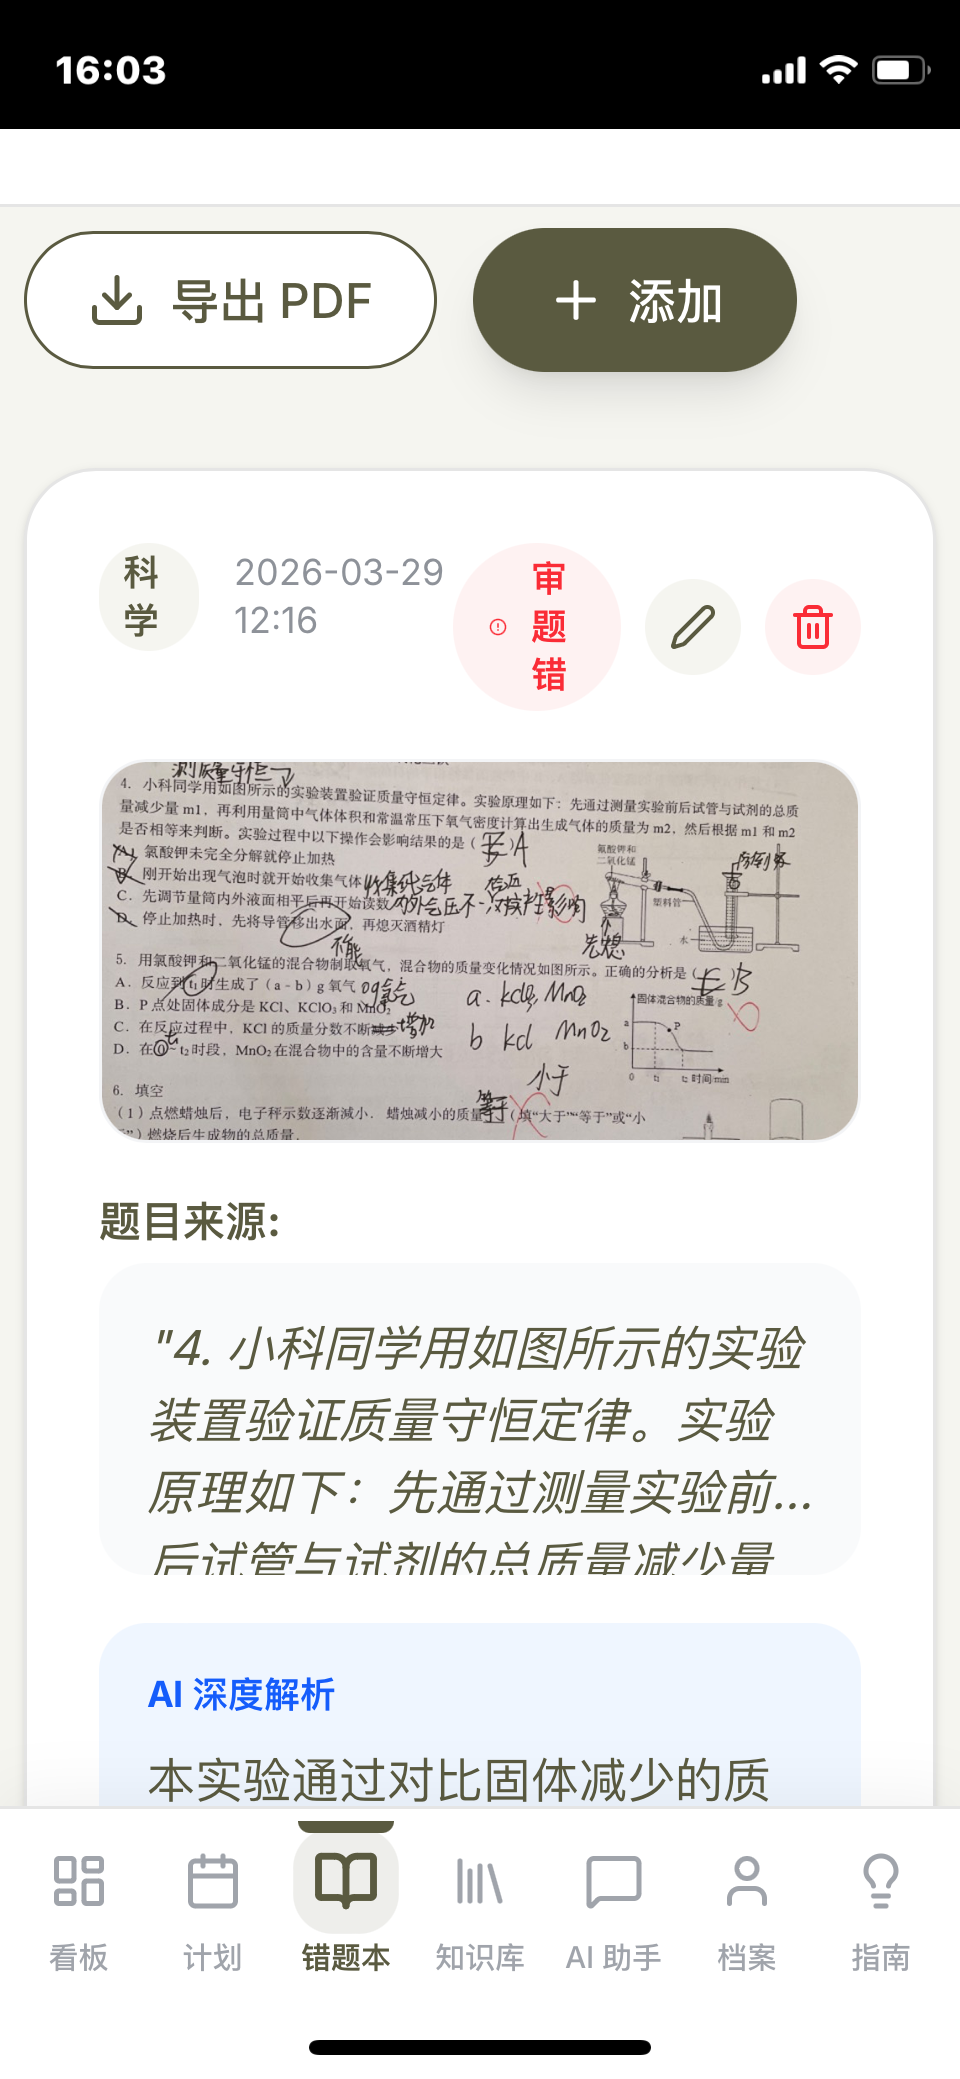 16:03
导出 PDF
添加
科学
2026-03-29
12:16
审题错
测质量守恒
4. 小科同学用如图所示的实验装置验证质量守恒定律。实验原理如下：先通过测量实验前后试管与试剂的总质
量减少量 m1，再利用量筒中气体体积和常温常压下氧气密度计算出生成气体的质量为 m2，然后根据 m1 和 m2
是否相等来判断。实验过程中以下操作会影响结果的是（ ）A
A. 氯酸钾未完全分解就停止加热
B. 刚开始出现气泡时就开始收集气体
C. 先调节量筒内外液面相平后再开始读数
D. 停止加热时，先将导管移出水面，再熄灭酒精灯
氯酸钾和
二氧化锰
塑料管
水
不能
先熄
5. 用氯酸钾和二氧化锰的混合物制取氧气，混合物的质量变化情况如图所示。正确的分析是（ ）B
A. 反应到 t₁ 时生成了（a - b）g 氧气 0g氧气
B. P 点处固体成分是 KCl、KClO₃ 和 MnO₂
C. 在反应过程中，KCl 的质量分数不断减少 增加
D. 在 t₁~ t₂ 时段，MnO₂ 在混合物中的含量不断增大
b kcl MnO₂
固体混合物的质量/g
a
P
b
0 t₁ t₂ 时间/min
6. 填空
小于
（1）点燃蜡烛后，电子秤示数逐渐减小. 蜡烛减小的质量 （填“大于”“等于”或“小
于”）燃烧后生成物的总质量.
题目来源:
"4. 小科同学用如图所示的实验
装置验证质量守恒定律。实验
原理如下：先通过测量实验前...
后试管与试剂的总质量减少量
AI 深度解析
本实验通过对比固体减少的质
看板
计划
错题本
知识库
AI 助手
档案
指南